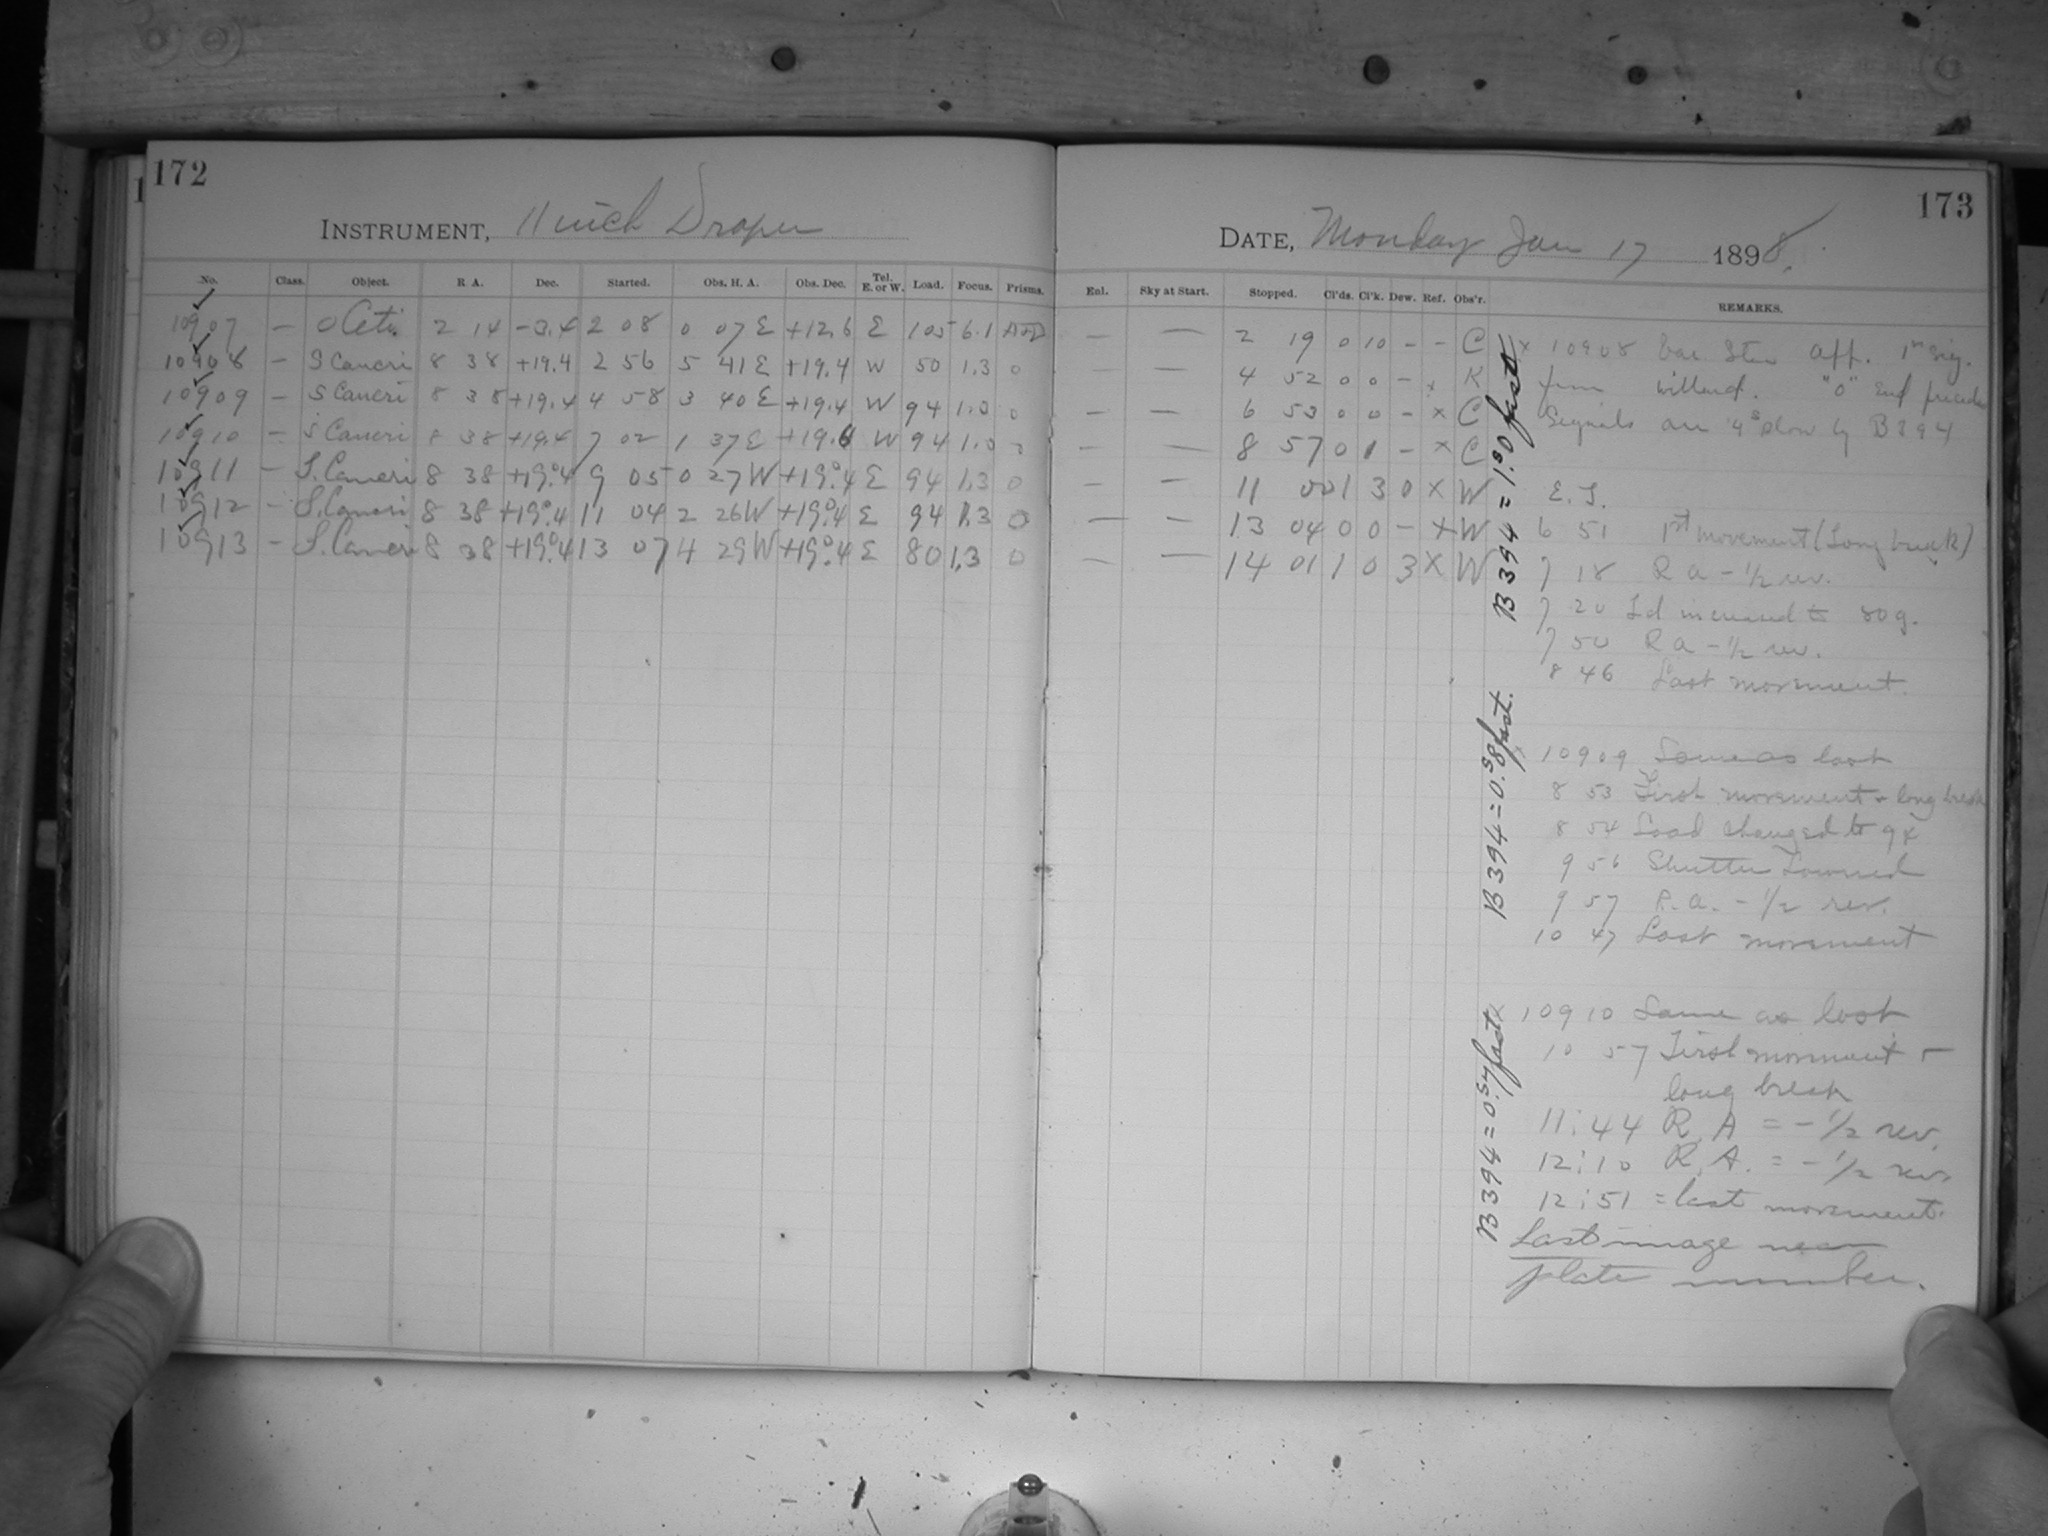 172
INSTRUMENT, 11 inch Draper
No. Class. Object. R A. Dec. Started. Obs. H. A. Obs. Dec. Tel. E. or W. Load. Focus. Prisms.
10907 — o Ceti 2 14 -3.4 2 08 0 07 E +12.6 E 105 6.1
10908 — S Cancri 8 38 +19.4 2 56 5 41 E +19.4 W 50 1.3 0
10909 — S Cancri 8 38 +19.4 4 58 3 40 E +19.4 W 94 1.3 0
10910 — S Cancri 8 38 +19.4 7 02 1 37 E +19.4 W 94 1.3 0
10911 — S. Cancri 8 38 +19°.4 9 05 0 27 W +19°.4 E 94 1.3 0
10912 — S. Cancri 8 38 +19°.4 11 04 2 26 W +19°.4 E 94 1.3 0
10913 — S. Cancri 8 38 +19°.4 13 07 4 29 W +19°.4 E 80 1.3 0
173
DATE, Monday Jan 17 1898.
Enl. Sky at Start. Stopped. Cl'ds. Cl'k. Dew. Ref. Obs'r. REMARKS.
— — 2 19 0 10 - - C
— — 4 52 0 0 - x K
— — 6 53 0 0 - x C
— — 8 57 0 1 - x C
— — 11 00 1 3 0 x W
— — 13 04 0 0 - + W
— — 14 01 1 0 3 x W
x 10908 Var. Star App. 1st sig.
from Willard. "0" End precedes
Signals are slow by B394
E. S.
6 51 1st movement (Long break)
7 18 R a - ½ rev.
7 20 Ld increased to 80 g.
7 50 R a - ½ rev.
8 46 Last movement.
B 394 = 1.s0 fast
x 10909 Same as last
8 53 First movement & long break
8 54 Load changed to 94
9 56 Shutter
9 57 R. a. - ½ rev.
10 47 Last movement
B 394 = 0.s8 fast.
x 10910 Same as last
10 57 First movement &
long break
11:44 R. A = - ½ rev.
12:10 R. A. = - ½ rev.
12:51 = last movement.
Last image near
plate number.
B 394 = 0.s7 fast